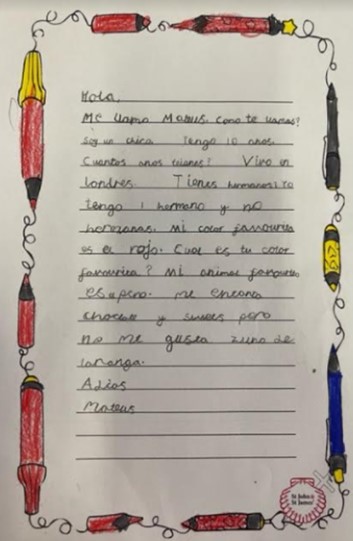 Hola,
Me llamo Mateus. Como te llamas?
Soy un chica Tengo 10 anos.
Cuantos anos tienes? Vivo en
londres. Tienes hermanos? Yo
tengo 1 hermano y no
hermanas. Mi color favourita
es el rojo. Cual es tu color
favourita? Mi animal favourito
es perro. me encanta
chocolate y sweets pero
no me gusta zumo de
laranga.
Adios
Mateus
St John &
St James